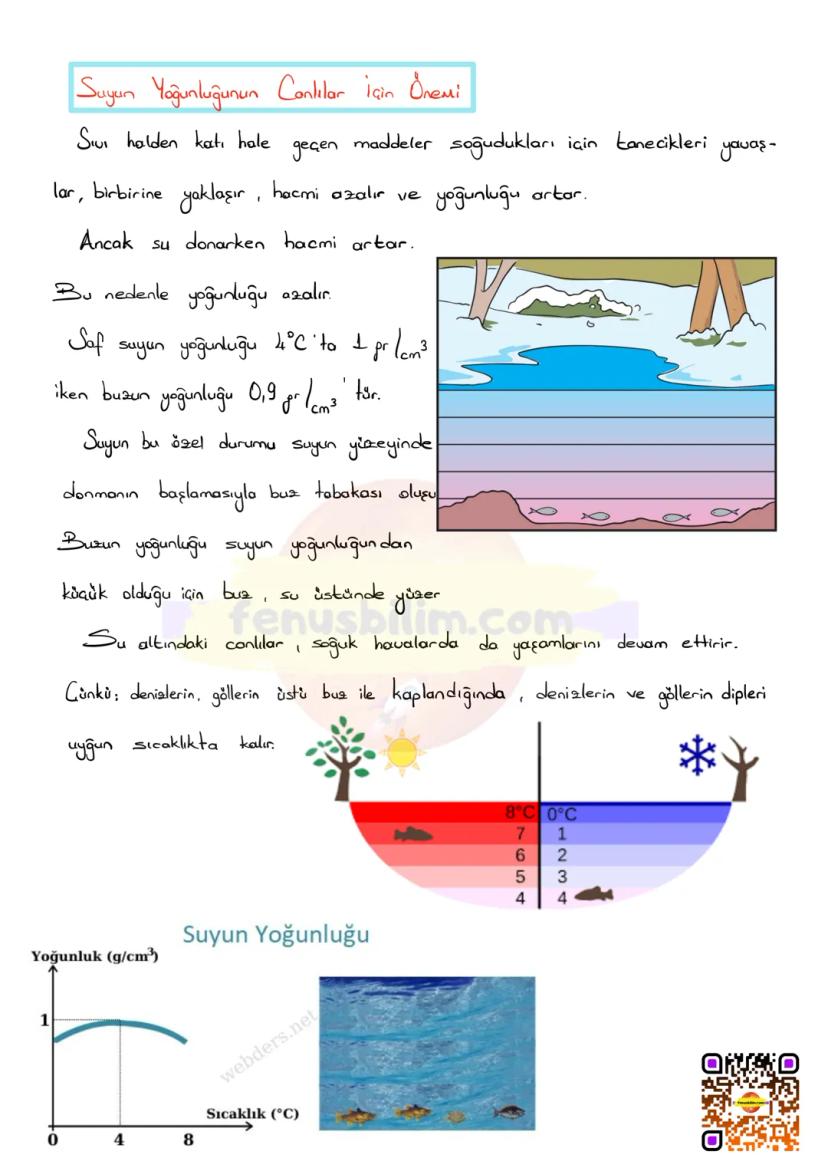 Suyun Yoğunluğunun Canlılar İçin Önemi
Sıvı halden katı hale geçen maddeler soğudukları için tanecikleri yavaş-
lar, birbirine yaklaşır, hacmi azalır ve yoğunluğu artar.
Ancak su donarken hacmi artar.
Bu nedenle yoğunluğu azalır.
Saf suyun yoğunluğu 4°C'ta 1 gr/cm³
iken buzun yoğunluğu 0,9 gr/cm³'tür.
Suyun bu özel durumu suyun yüzeyinde
donmanın başlamasıyla buz tabakası oluşu
Buzun yoğunluğu suyun yoğunluğundan
küçük olduğu için buz, su üstünde yüzer
fenusbilim.com
Su altındaki canlılar, soğuk havalarda da yaşamlarını devam ettirir.
Çünkü; denizlerin, göllerin üstü buz ile kaplandığında, denizlerin ve göllerin dipleri
uygun sıcaklıkta kalır.
8°C 0°C
7 1
6 2
5 3
4 4
Suyun Yoğunluğu
Yoğunluk (g/cm³)
1
webders.net
Sıcaklık (°C)
0 4 8
fenusbilim.com